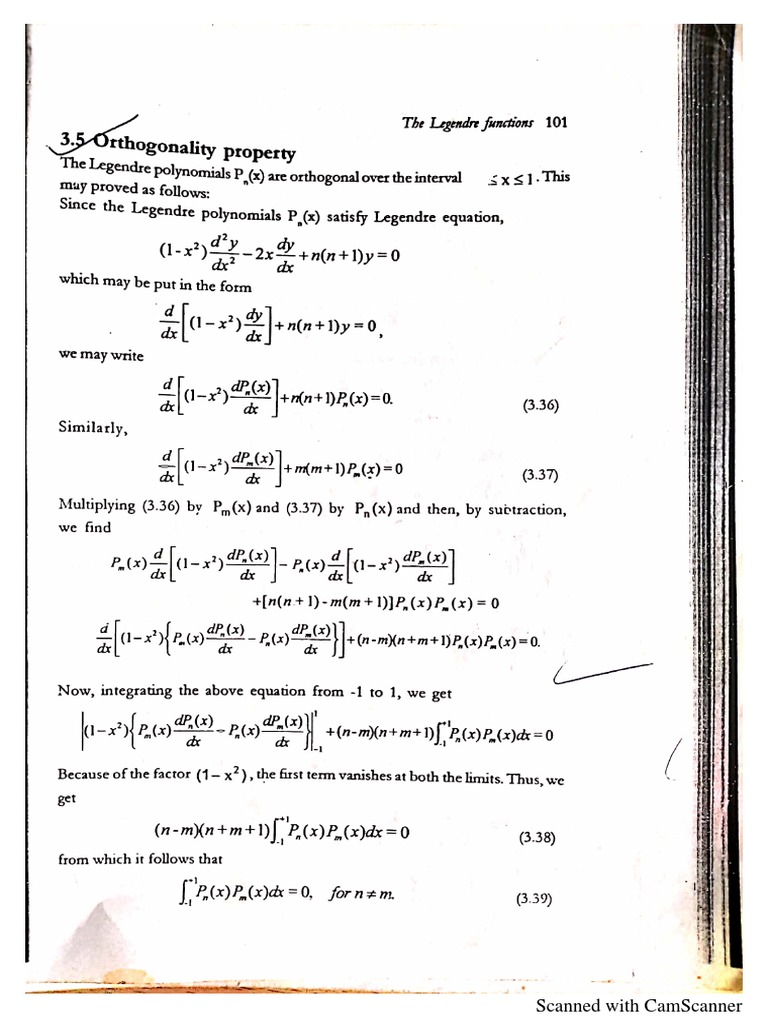 The Legendre functions 101
3.5 Orthogonality property
The Legendre polynomials Pₙ(x) are orthogonal over the interval ≤ x ≤ 1. This
may proved as follows:
Since the Legendre polynomials Pₙ(x) satisfy Legendre equation,
(1-x²) d²y/dx² − 2x dy/dx + n(n+1)y = 0
which may be put in the form
d/dx[(1−x²) dy/dx] + n(n+1)y = 0,
we may write
d/dx[(1−x²) dPₙ(x)/dx] + n(n+1)Pₙ(x) = 0. (3.36)
Similarly,
d/dx[(1−x²) dPₘ(x)/dx] + m(m+1)Pₘ(x) = 0 (3.37)
Multiplying (3.36) by Pₘ(x) and (3.37) by Pₙ(x) and then, by subtraction,
we find
Pₘ(x) d/dx[(1−x²) dPₙ(x)/dx] − Pₙ(x) d/dx[(1−x²) dPₘ(x)/dx]
+[n(n+1) - m(m+1)]Pₙ(x)Pₘ(x) = 0
d/dx[(1−x²){Pₘ(x) dPₙ(x)/dx − Pₙ(x) dPₘ(x)/dx}] + (n-m)(n+m+1)Pₙ(x)Pₘ(x) = 0.
Now, integrating the above equation from -1 to 1, we get
|(1−x²){Pₘ(x) dPₙ(x)/dx − Pₙ(x) dPₘ(x)/dx}|₋₁¹ + (n-m)(n+m+1)∫₋₁⁺¹ Pₙ(x)Pₘ(x)dx = 0
Because of the factor (1−x²), the first term vanishes at both the limits. Thus, we
get
(n-m)(n+m+1)∫₋₁⁺¹ Pₙ(x)Pₘ(x)dx = 0 (3.38)
from which it follows that
∫₋₁⁺¹ Pₙ(x)Pₘ(x)dx = 0, for n ≠ m. (3.39)
Scanned with CamScanner